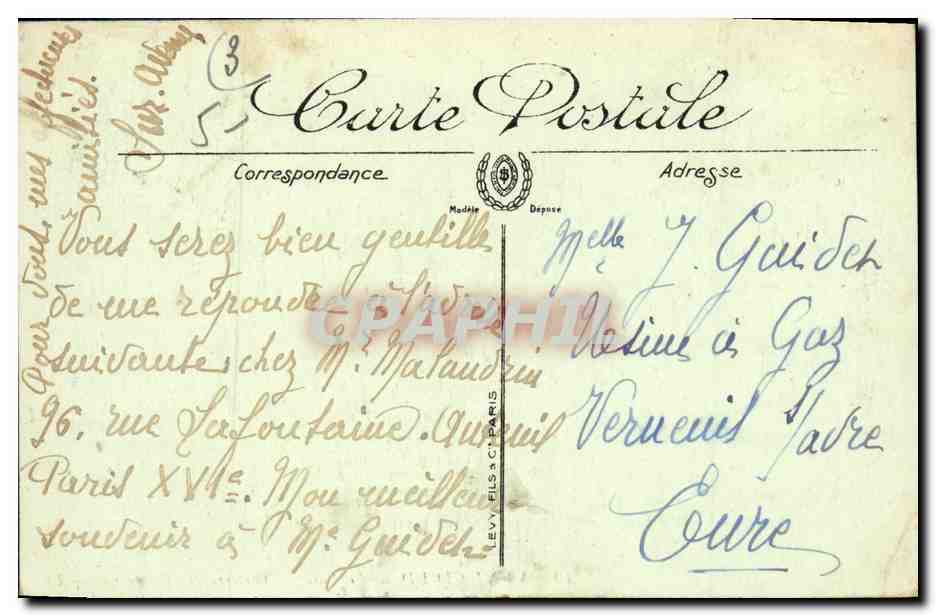 (3
5-
Carte Postale
Correspondance
Adresse
Modèle Déposé
Vous serez bien gentille
de me répondre à l'adresse
suivante, chez Mr Malandrin
96. rue Lafontaine. Auteuil
Paris XVIe. Mon meilleur
souvenir à Me Guider
Pour vous mes
amitiés.
LEVY, FILS & Cie PARIS
Melle J. Guider
Usine à Gaz
Verneuil s/avre
Eure
CPAPHIL